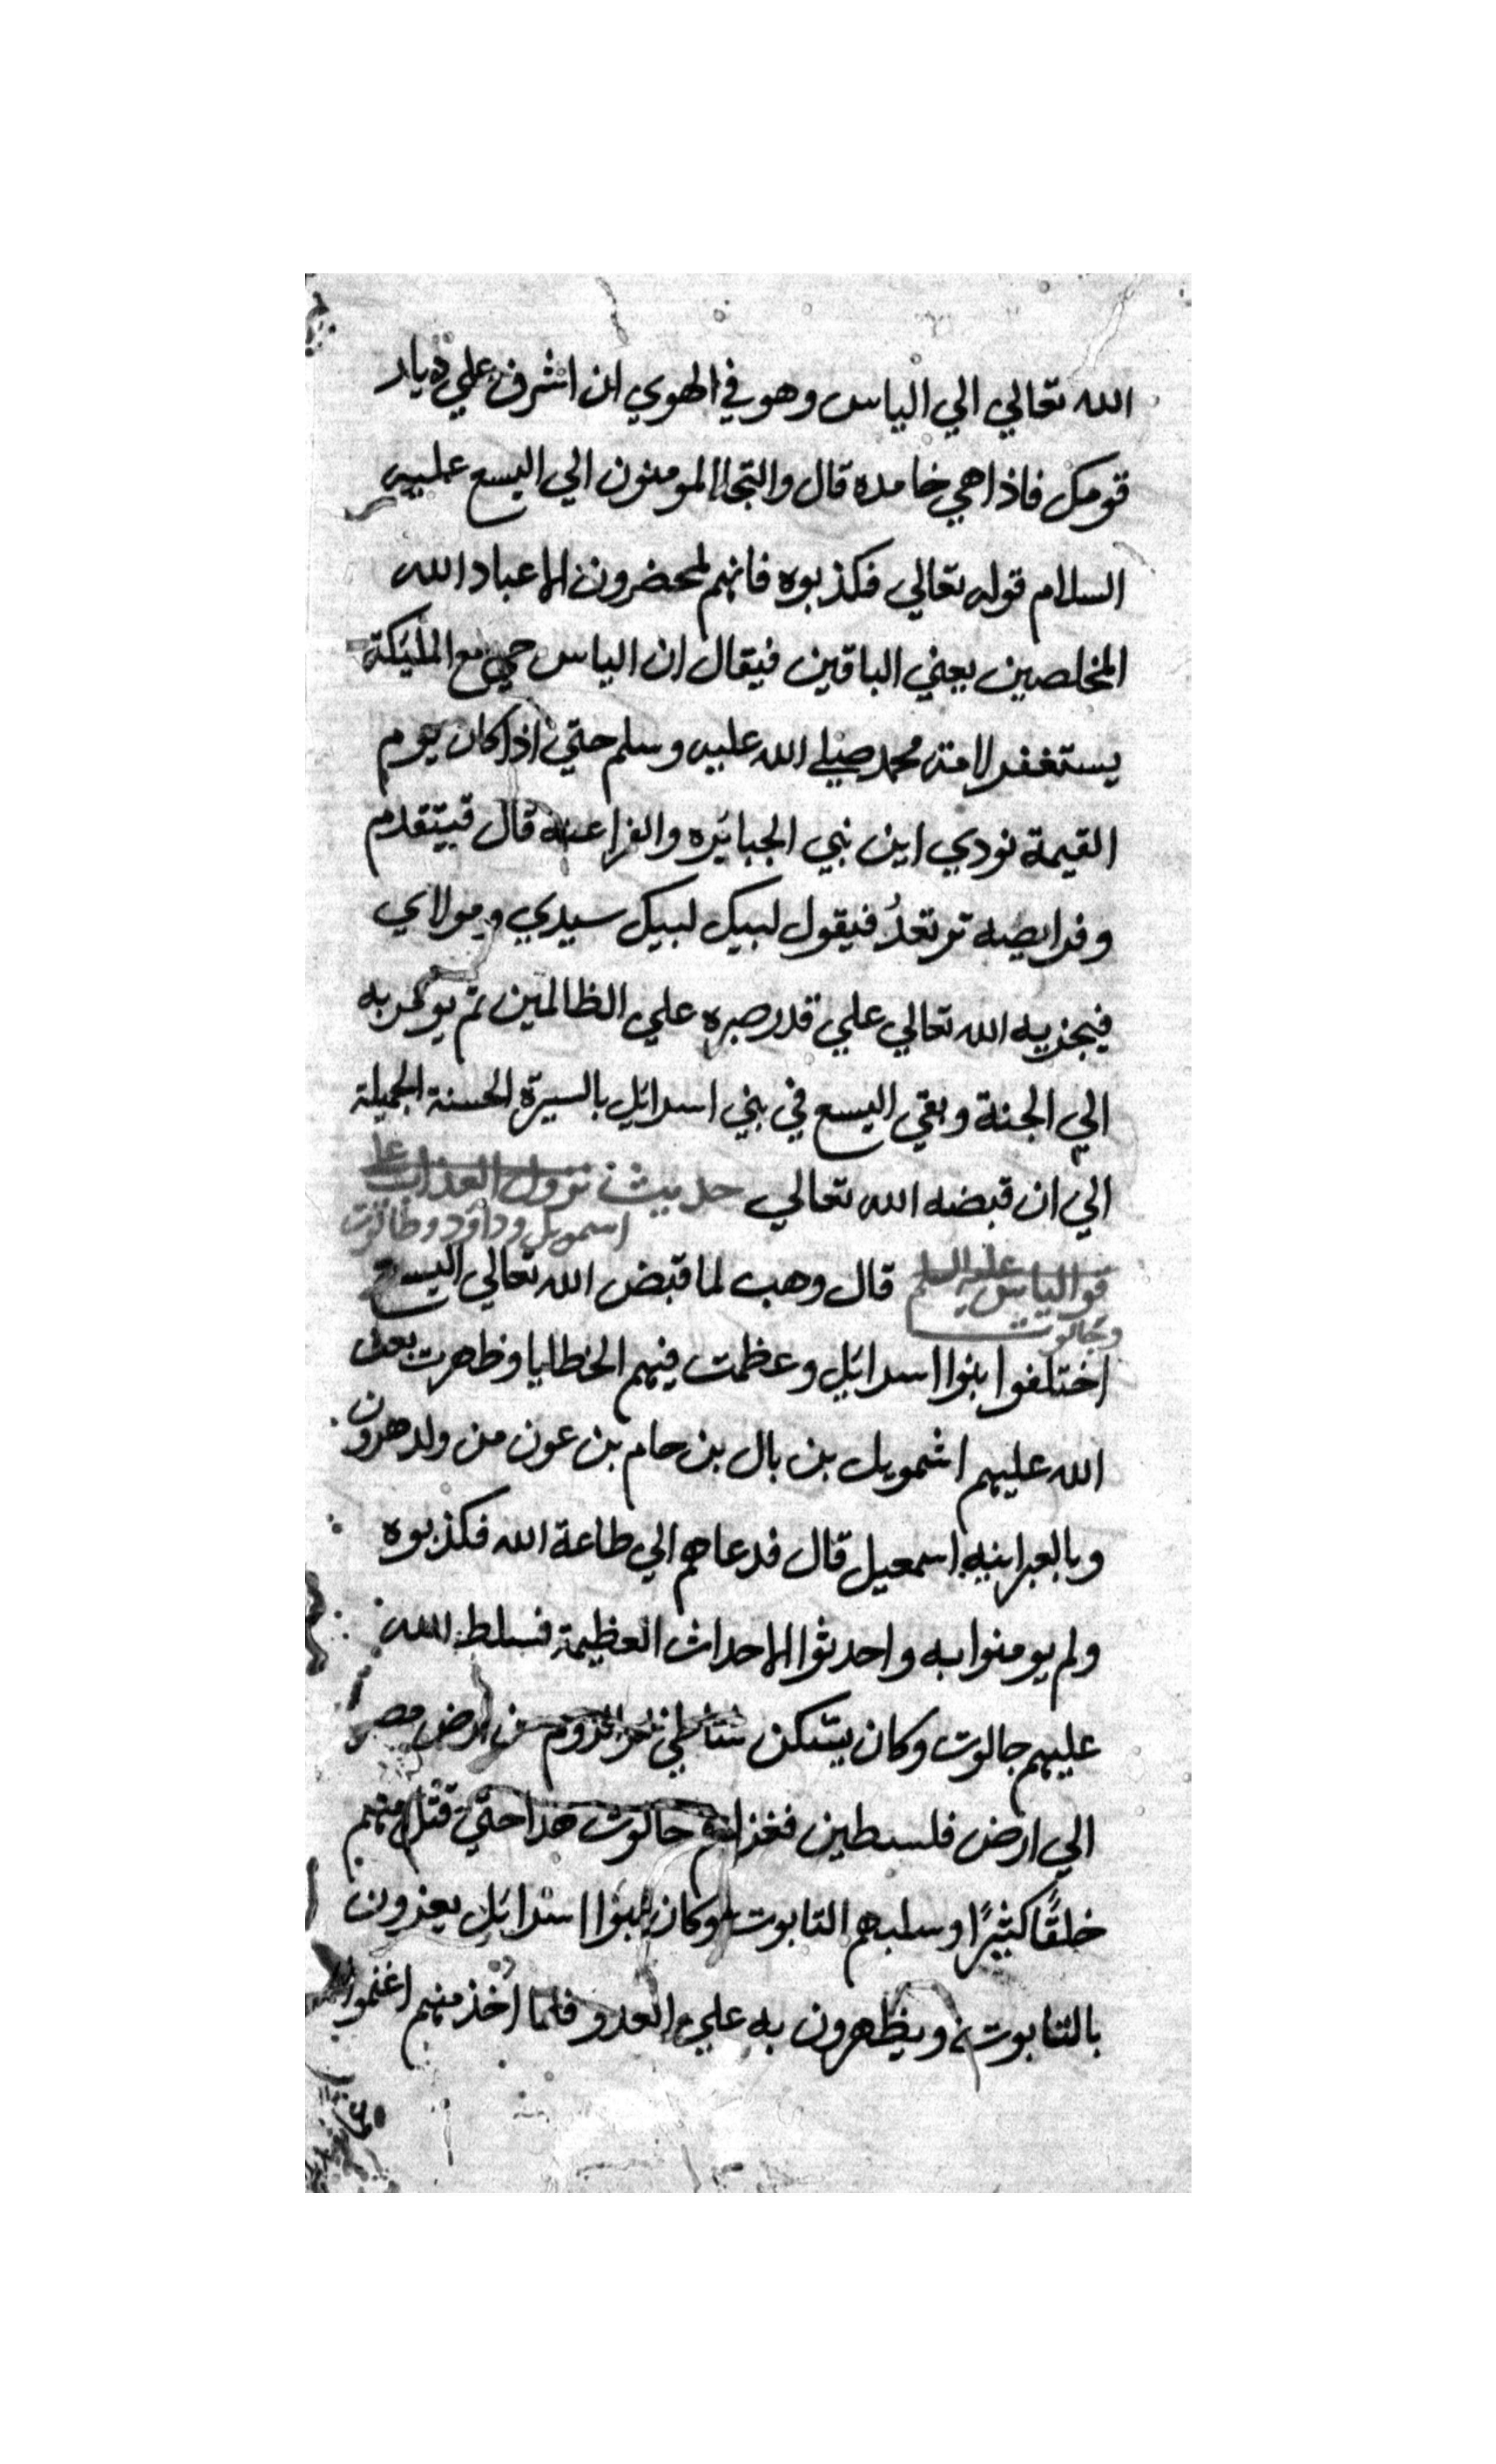 الله تعالي الي الياس وهو في الهوي ان اشرف علي ديار
قومك فاذا هي خامده قال والتجا المومنون الي اليسع عليه
السلام قوله تعالي فكذبوه فانهم لمحضرون الا عباد الله
المخلصين يعني الباقين فيقال ان الياس حي مع المليكة
يستغفر لامة محمد صلي الله عليه وسلم حتي اذا كان يوم
القيمة نودي اين نبي الجبابره والفراعنه قال فيتقدم
وفرايصه ترتعدُ فيقول لبيك لبيك سيدي ومولاي
فيجزيه الله تعالي علي قدر صبره علي الظالمين ثم يومر به
الي الجنة وبقي اليسع في بني اسرايل بالسيرة الحسنة الجميلة
الي ان قبضه الله تعالي حديث نزول العذاب علي
اسمويل وداود وطالوت
قوم الياس عليه السلم قال وهب لما قبض الله تعالي اليسع
وجالوت
اختلفوا بنوا اسرايل وعظمت فيهم الخطايا وظهرت بعث
الله عليهم اشمويل بن بال بن حام بن عون من ولد هرون
وبالعبرانيه اسمعيل قال فدعاهم الي طاعة الله فكذبوه
ولم يومنوا به واحدثوا الاحداث العظيمة فسلط الله
عليهم جالوت وكان يسكن بحر الروم من ارض مصر
الي ارض فلسطين فغزاهم جالوت هذا حتي قتل منهم
خلقًا كثيرًا وسلبهم التابوت وكان بنوا اسرايل يغزون
بالتابوت ويظهرون به علي العدو فلما اخذ منهم اغتموا